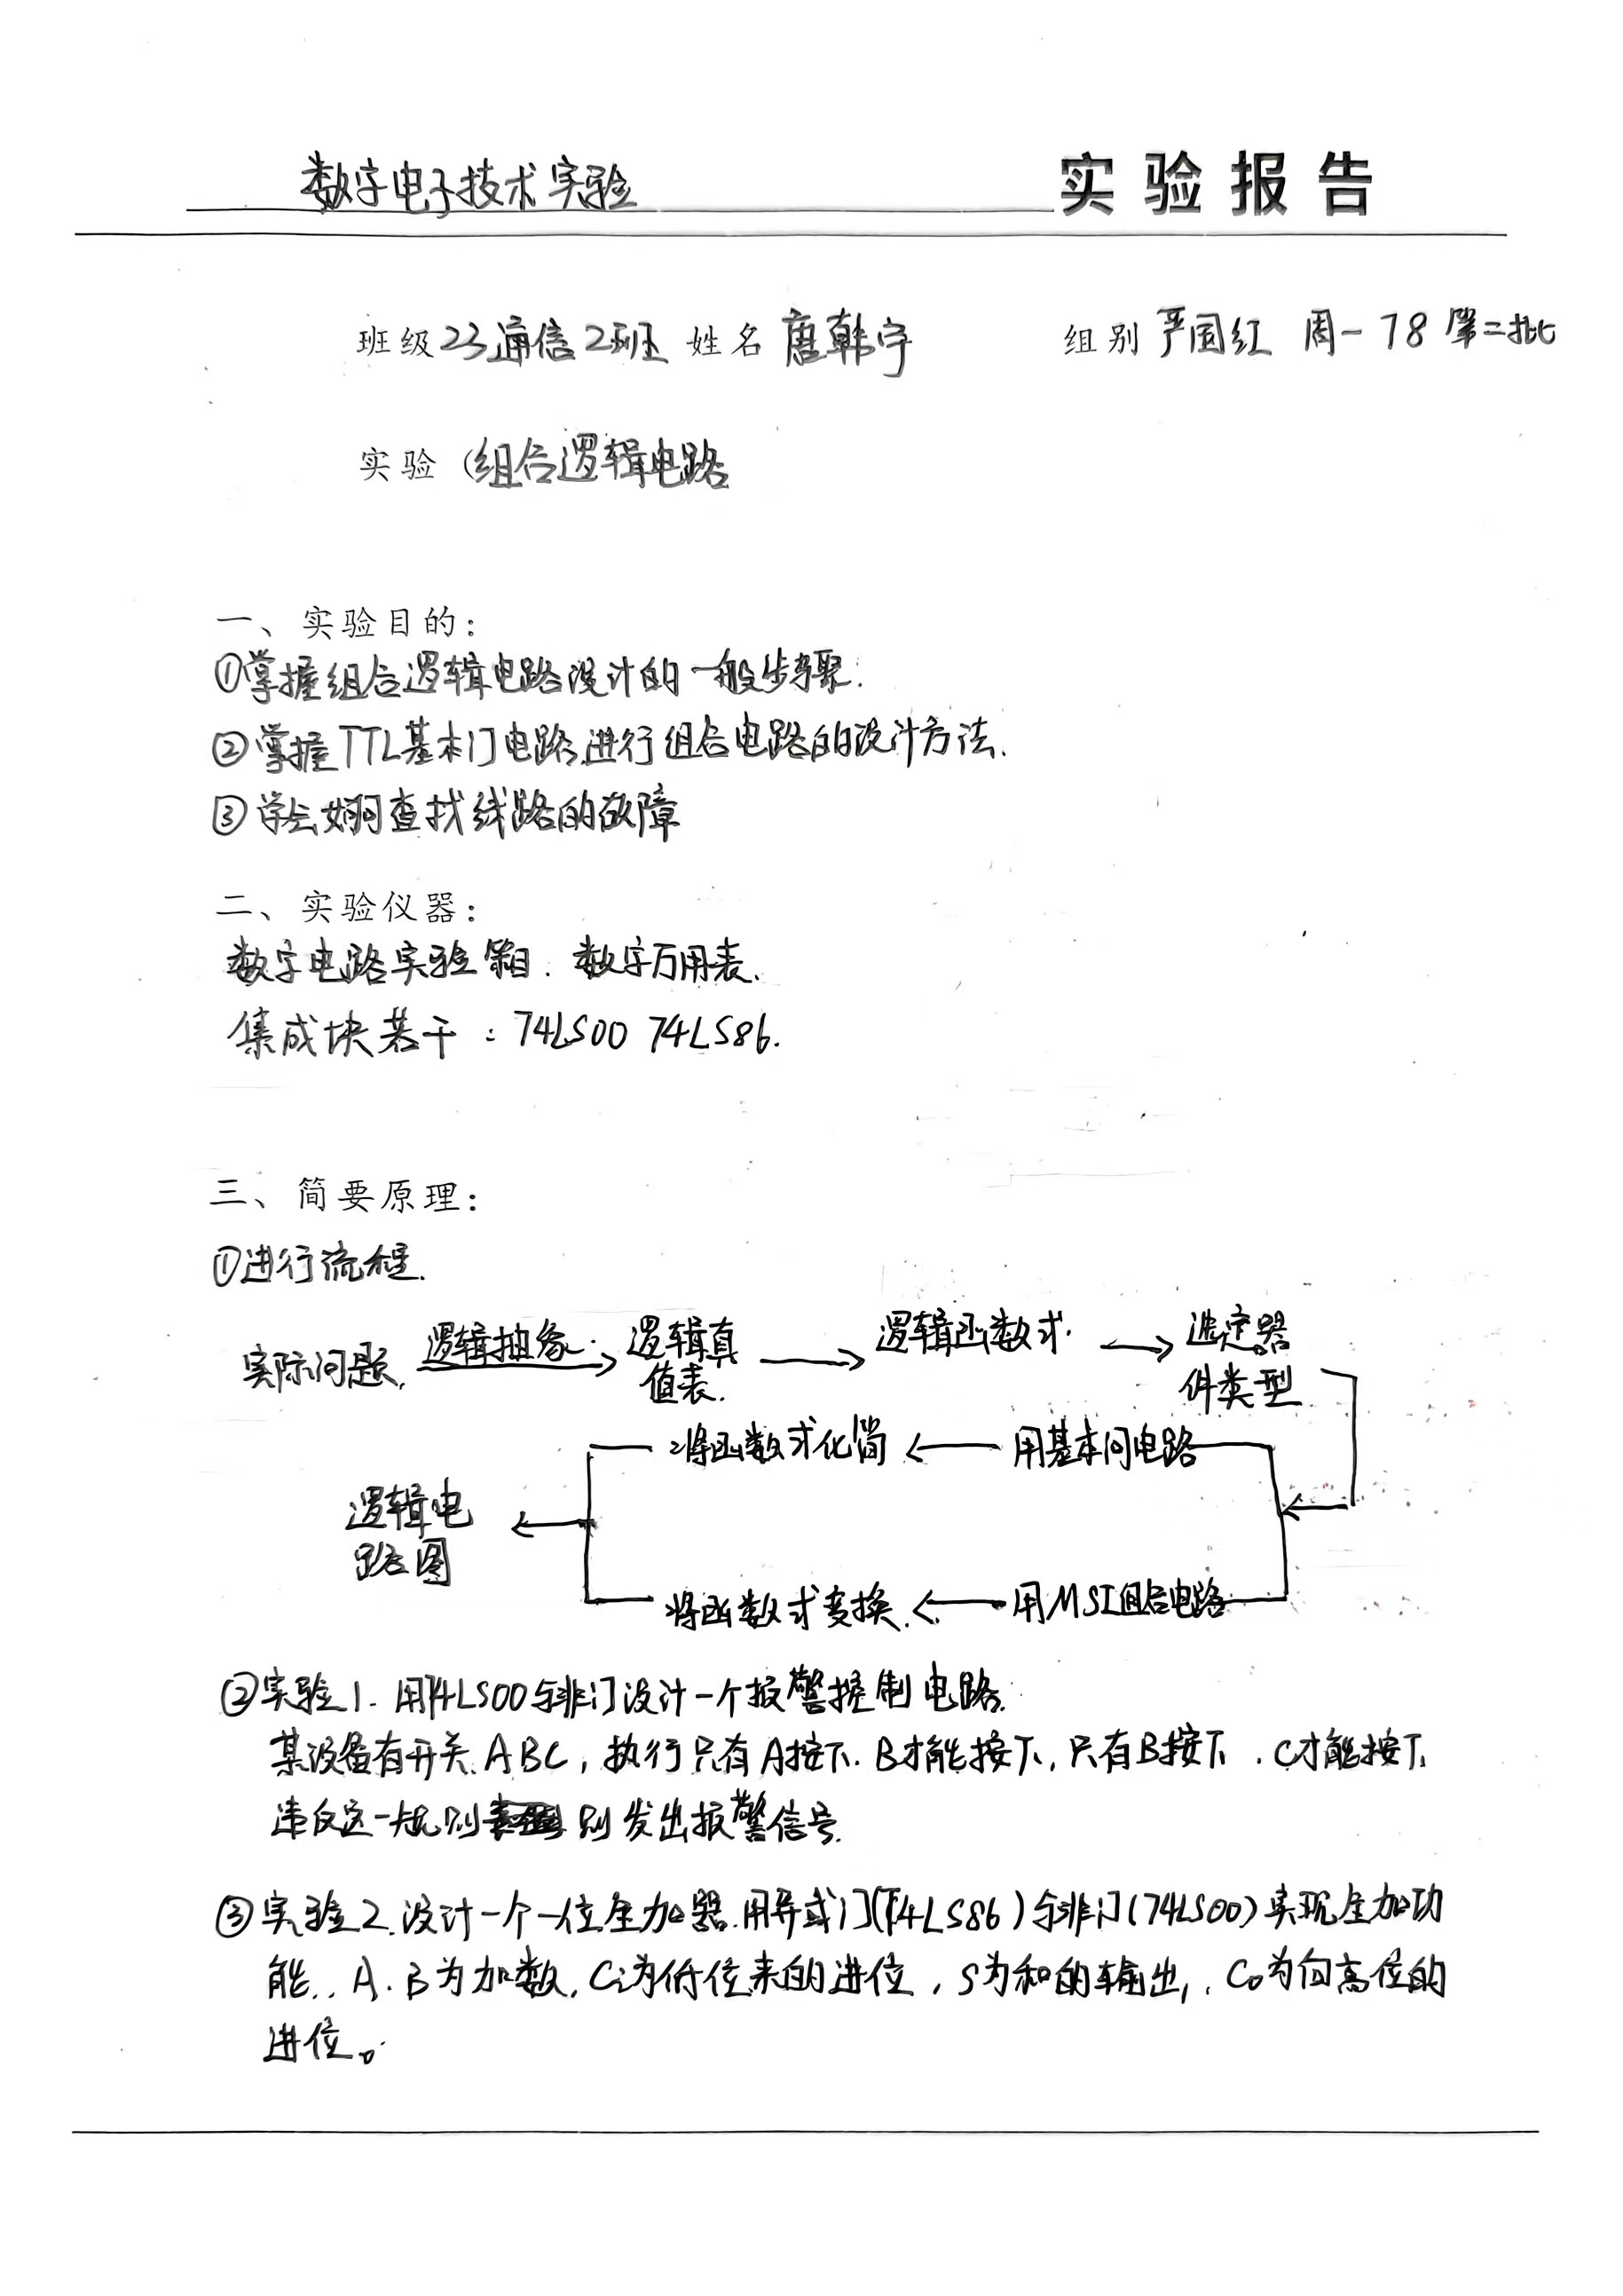 数字电子技术实验 实验报告
班级 23通信2班 姓名 唐韩宇 组别 严国红 周一 78 第二批
实验 (组合逻辑电路
一、实验目的:
①掌握组合逻辑电路设计的一般步骤.
②掌握TTL基本门电路进行组合电路的设计方法.
③学会如何查找线路的故障
二、实验仪器:
数字电路实验箱. 数字万用表.
集成块若干: 74LS00 74LS86.
三、简要原理:
①进行流程.
实际问题. 逻辑抽象 逻辑真 逻辑函数式. 选定器
值表. 件类型
将函数式化简 用基本门电路
逻辑电
路图
将函数式变换. 用MSI组合电路
②实验1. 用74LS00与非门设计一个报警控制电路.
某设备有开关ABC, 执行只有A按下. B才能按下, 只有B按下. C才能按下
违反这一规则 则发出报警信号.
③实验2. 设计一个一位全加器. 用异或门(74LS86)与非门(74LS00)实现全加功
能.. A. B为加数, Ci为低位来的进位, S为和的输出, . Co为向高位的
进位。